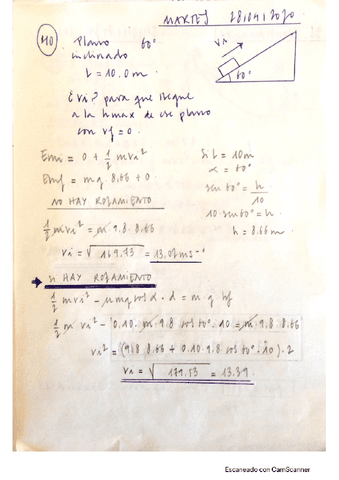 MARTES 28/04/2020
40) Plano 60°
inclinado
L = 10.0 m
Vi
60°
¿Vi? para que llegue
a la h max de ese plano
con vf = 0.
Emi = 0 + 1/2 mvi²
Emf = mg 8.66 + 0
NO HAY ROZAMIENTO
1/2 mvi² = m 9.8 8.66
vi = √169.73 = 13.02 ms⁻¹
Si L = 10m
α = 60°
sen 60° = h/10
10·sen 60° = h
h = 8.66 m
SI HAY ROZAMIENTO
1/2 mvi² - μmg cos α · d = mg hf
1/2 m vi² - 0.10 · m · 9.8 cos 60° · 10 = m 9.8 8.66
vi² = (9.8 8.66 + 0.10 · 9.8 cos 60° · 10) · 2
vi = √179.53 = 13.39
Escaneado con CamScanner